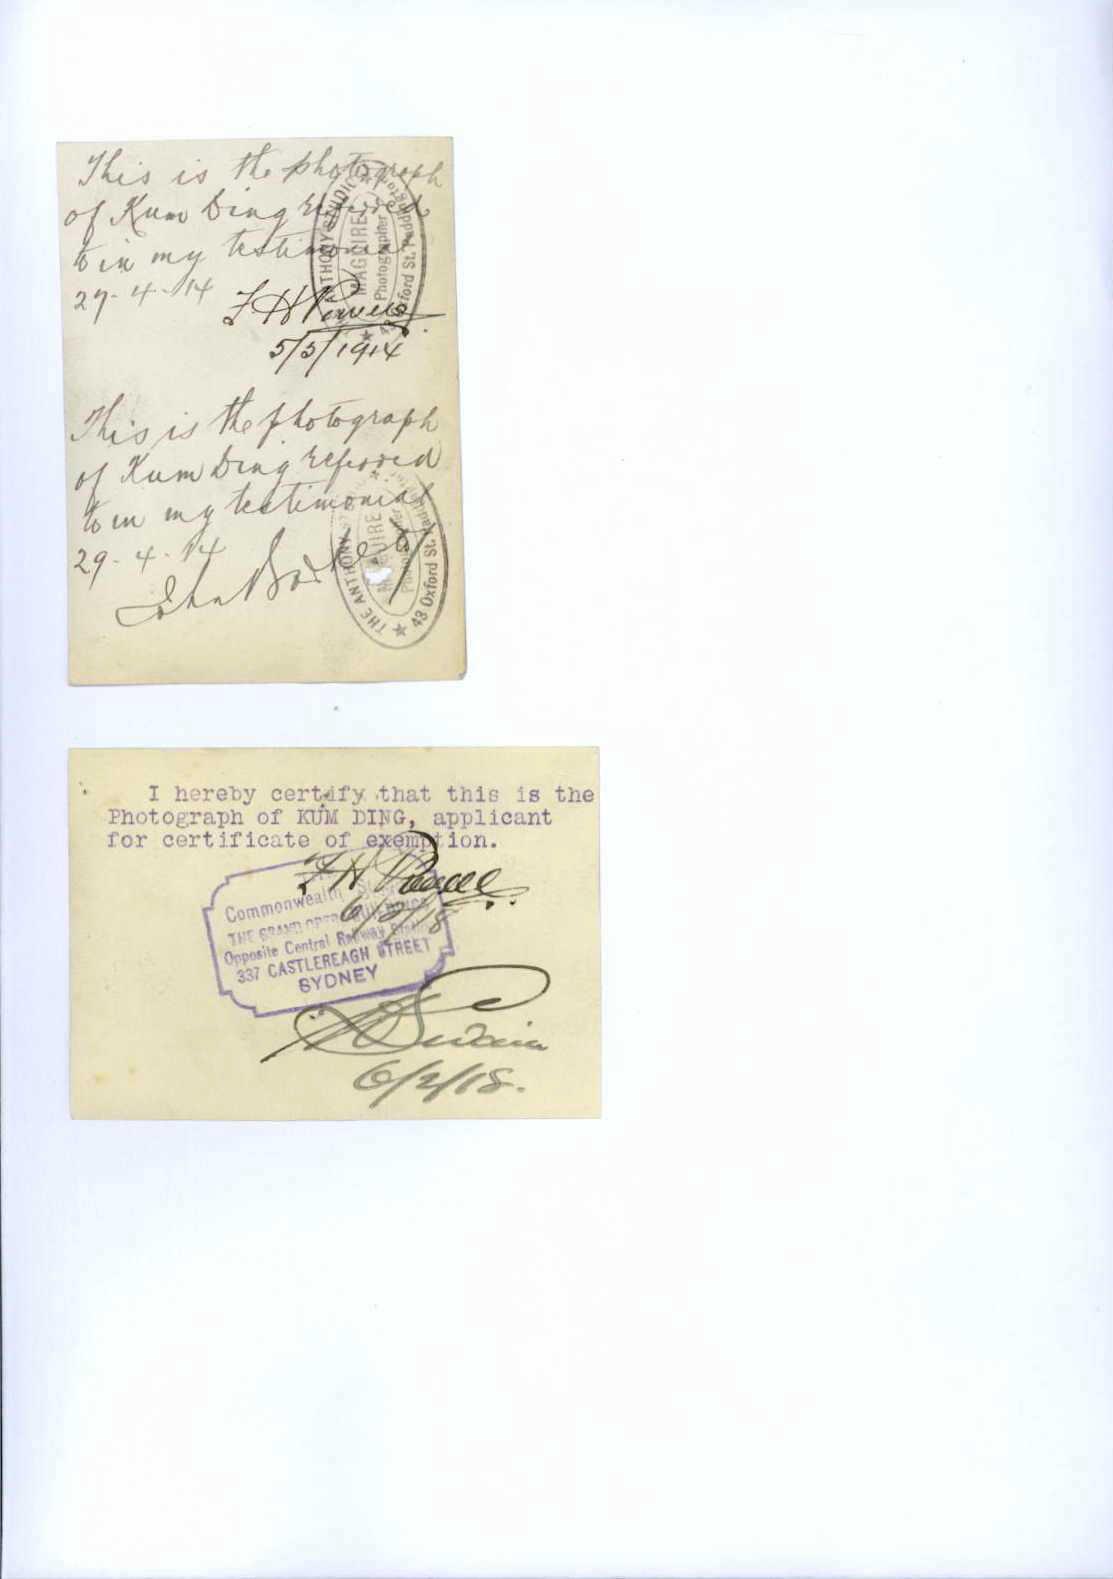 This is the photograph
of Kum Ding referred
to in my testimonial
27-4-14
F H Powell
5/5/1914
THE ANTHONY STUDIO
MAGUIRE
Photographer
43 Oxford St. Paddington
This is the photograph
of Kum Ding referred
to in my testimonial
29-4-14
John
THE ANTHONY STUDIO
MAGUIRE
Photographer
43 Oxford St. Paddington
I hereby certify that this is the
Photograph of KUM DING, applicant
for certificate of exemption.
F H Powell
6/2/18
Commonwealth
THE GRAND OPERA BUILDINGS
Opposite Central Railway Station
337 CASTLEREAGH STREET
SYDNEY
6/2/18.